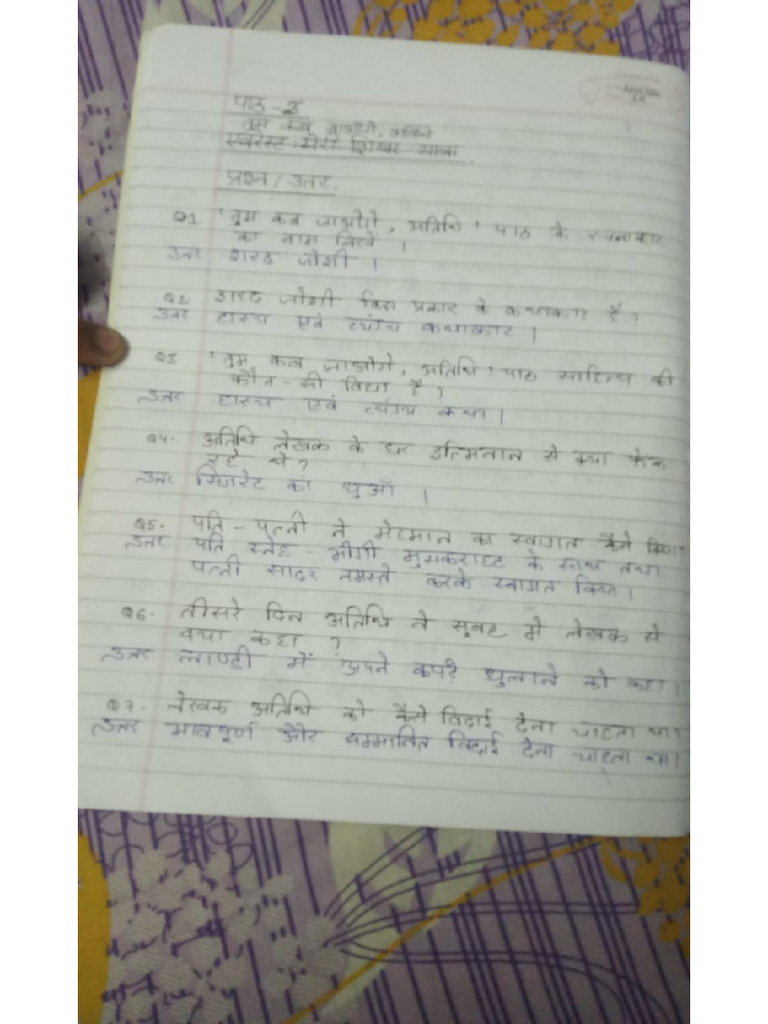 पाठ - 3
तुम कब जाओगे, अतिथि
एवरेस्ट : मेरी शिखर यात्रा
प्रश्न / उत्तर.
Q1 'तुम कब जाओगे, अतिथि' पाठ के रचनाकार
का नाम लिखें ।
उत्तर शरद जोशी ।
Q2 शरद जोशी किस प्रकार के कथाकार है ?
उत्तर हास्य एवं व्यंग्य कथाकार ।
Q3 'तुम कब जाओगे, अतिथि' पाठ साहित्य की
कौन-सी विधा है ?
उत्तर हास्य एवं व्यंग्य कथा ।
Q4. अतिथि लेखक के घर इत्मिनान से क्या फेंक
रहे थे ?
उत्तर सिगरेट का धुआँ ।
Q5. पति - पत्नी ने मेहमान का स्वागत कैसे किया
उत्तर पति स्नेह - भीगी मुस्कराहट के साथ तथा
पत्नी सादर नमस्ते करके स्वागत किया ।
Q6. तीसरे दिन अतिथि ने सुबह में लेखक से
क्या कहा ?
उत्तर लाण्ड्री में अपने कपड़े धुलाने को कहा ।
Q7. लेखक अतिथि को कैसे विदाई देना चाहता था
उत्तर भावपूर्ण और सम्मानित विदाई देना चाहता था ।